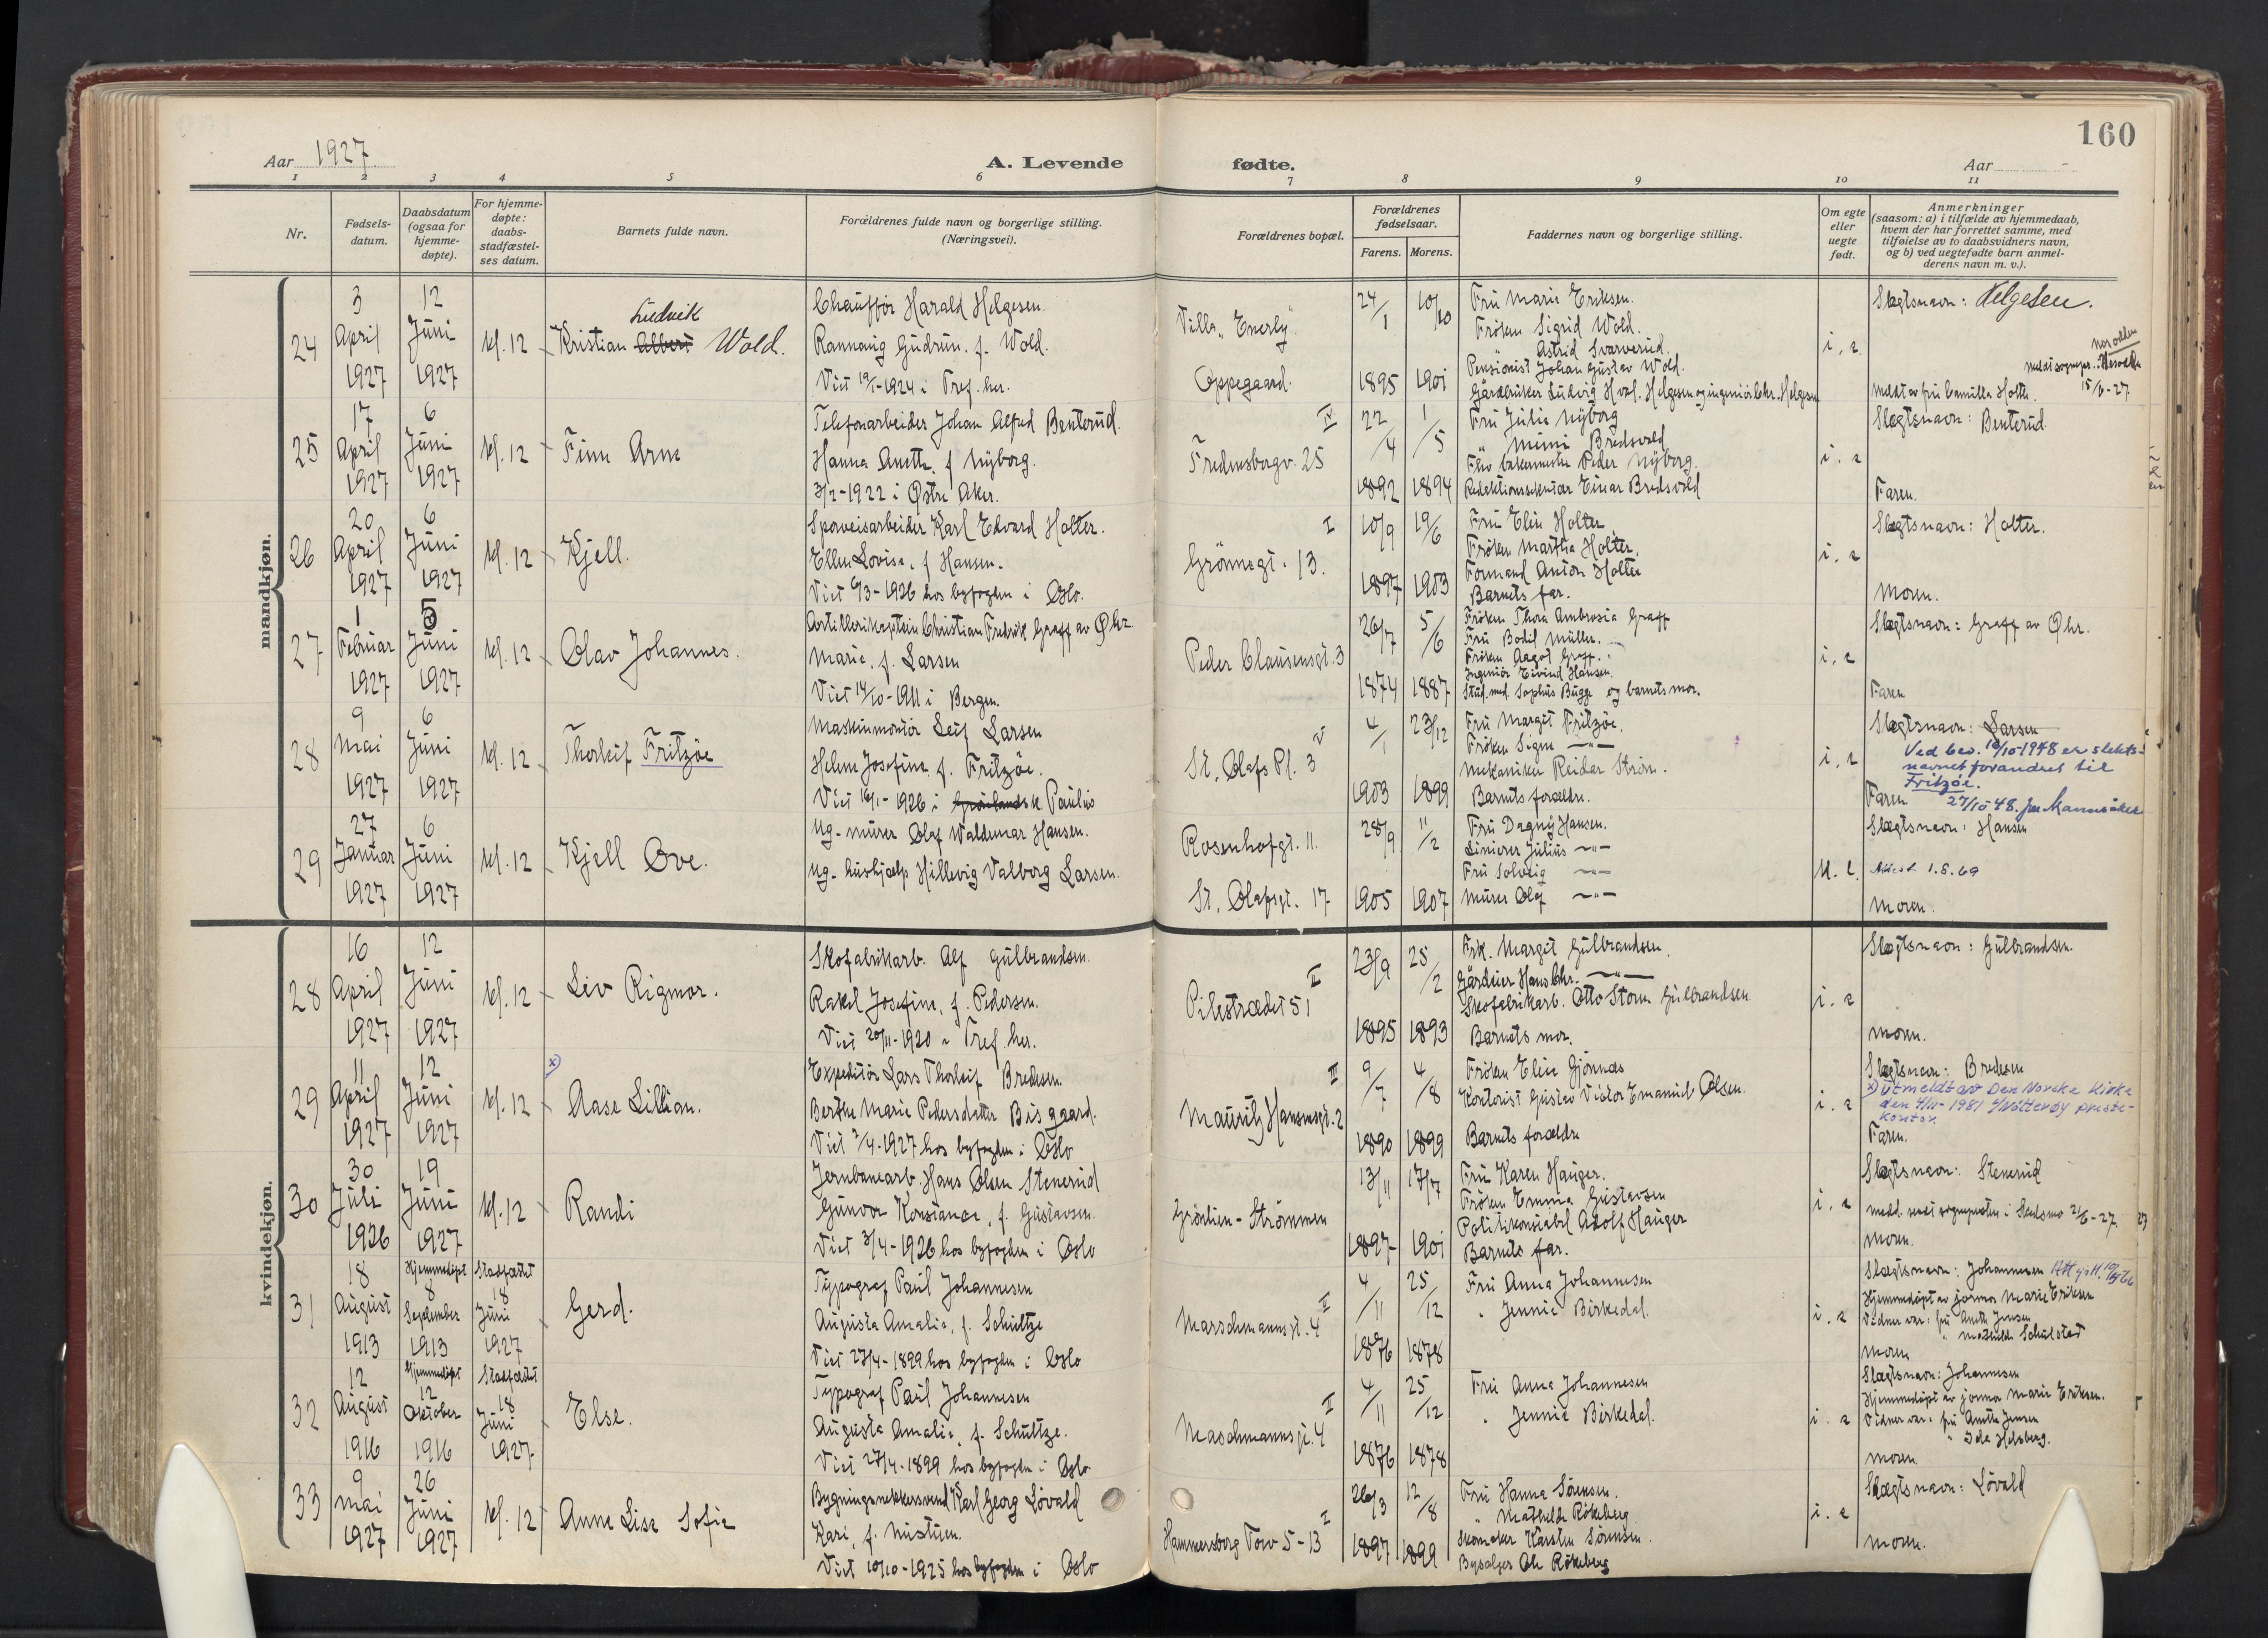 160
Aar 1927
A. Levende fødte.
Aar
1 2 3 4 5 6 7 8 9 10 11
Nr.
Fødsels-
datum.
Daabsdatum
(ogsaa for
hjemme-
døpte).
For hjemme-
døpte:
daabs-
stadfæstel-
ses datum.
Barnets fulde navn.
Forældrenes fulde navn og borgerlige stilling.
(Næringsvei).
Forældrenes bopæl.
Forældrenes
fødselsaar.
Farens. Morens.
Faddernes navn og borgerlige stilling.
Om egte
eller
uegte
født.
Anmerkninger
(saasom: a) i tilfælde av hjemmedaab,
hvem der har forrettet samme, med
tilføielse av to daabsvidners navn,
og b) ved uegtefødte barn anmel-
derens navn m. v.).
mandkjøn.
24
3 April 1927
12 Juni 1927
kl. 12
Ludvik
Kristian Albert Wold.
Chauffør Harald Helgesen.
Rannaug Gudrun. f. Wold.
Viet 19/1-1924 i Tref. her.
Villa "Enerly"
Oppegaard.
24/1 1895
10/10 1901
Fru Marie Eriksen.
Frøken Sigrid Wold.
" Astrid Svarverud.
Pensionist Johan Gustav Wold.
Gårdbruker Ludvig Hval. Helgesen og ingeniör Chr. Helgesen
i. e.
Slegtsnavn: Helgesen.
Nesodden
15/6-27.
Meldt av fru Camilla Holte.
25
17 April 1927
6 Juni 1927
kl. 12
Finn Arne
Telefonarbeider Johan Alfred Benterud.
Hanna Anette. f Nyborg.
3/2-1922 i Østre Aker.
IV
Fredensborgv. 25
22/4 1892
1/5 1894
Fru Julie Nyborg
" Mimi Bredsvold
Fhv bakermester Peder Nyborg.
Redaktionssekretær Einar Bredsvold
i. e
Slegtsnavn: Benterud.
Faren.
26
20 April 1927
6 Juni 1927
kl. 12
Kjell.
Sporveisarbeider Karl Edvard Holter.
Ellen Lovise, f Hansen.
Viet 6/3-1926 hos byfogden i Oslo.
I
Grönnegt. 13.
10/9 1897
19/6 1903
Fru Elin Holter
Frøken Martha Holter.
Formand Anton Holter
Barnets far.
i. e
Slegtsnavn: Holter.
Moren.
27
1 Februar 1927
5 Juni 1927
kl. 12
Olav Johannes.
Artillerikaptein Christian Fredrik Graff av Ohr
Marie, f. Larsen
Viet 14/10-1911 i Bergen.
Peder Clausensgt. 3
26/7 1874
5/6 1887
Frøken Thora Ambrosia Graff
Fru Bodil Müller.
Frøken Aagot Graff.
Ingeniör Eivind Hansen.
Stud. med. Sophus Bugge og barnets mor.
i. e
Slegtsnavn: Graff av Ohr.
Faren
28
9 Mai 1927
6 Juni 1927
kl. 12
Thorleif Fritzöe
Maskinmontör Leif Larsen
Helene Josefine f. Fritzöe.
Viet 16/1-1926 i Grönlands k Paulus
V
St. Olafs Pl. 3
4/1 1903
23/12 1899
Fru Margit Fritzöe.
Frøken Signe —"—
Mekaniker Reidar Ström.
Barnets forældre.
i. e
Slegtsnavn: Larsen
Ved bev. 16/10-1948 er slekts-
navnet forandret til
Fritzöe.
27/10 48.
Faren
29
27 Januar 1927
6 Juni 1927
kl. 12
Kjell Ove.
Ug. murer Olaf Waldemar Hansen.
Ug. hushjælp Hillevig Valborg Larsen.
Rosenhofgt. 11.
St. Olafsgt. 17
28/9 1905
11/2 1907
Fru Dagny Hansen.
Linierer Julius —"—
Fru Solveig —"—
Murer Olaf —"—
U. e.
Slegtsnavn: Hansen
Attest 1.8.69
Moren.
kvindekjøn.
28
16 April 1927
12 Juni 1927
kl. 12
Liv Rigmor.
Skofabrikarb. Alf Gulbrandsen.
Rakel Josefine, f. Pedersen.
Viet 20/11-1920 i Tref. her.
II
Pilestrædet 51
23/9 1895
25/2 1893
Frk. Margit Gulbrandsen.
Gårdeier Hans Chr. —"—
Skofabrikarb. Otto Storm Gulbrandsen.
Barnets mor.
i. e
Slegtsnavn: Gulbrandsen.
Moren.
29
11 April 1927
12 Juni 1927
kl. 12
x)
Aase Lillian.
Expeditör Lars Thorleif Bredesen.
Berthe Marie Pedersdatter Bisgaard.
Viet 2/4-1927 hos byfogden i Oslo
III
Mauritz Hansensgt. 2
9/7 1890
4/8 1899
Frøken Elise Gjönnes
Kontorist Gustav Victor Emanuel Olsen.
Barnets forældre
i. e
Slegtsnavn: Bredesen
x) Utmeldt av Den Norske Kirke
den 4/11-1981 v/Nötteröy preste-
kontor.
Faren.
30
30 Juli 1926
19 Juni 1927
kl. 12
Randi
Jernbanearb. Hans Olsen Stenerud
Gunvor Konstance, f. Gustavsen.
Viet 3/4-1926 hos byfogden i Oslo
Grönlien-Strömmen
13/11 1897
17/7 1901
Fru Karen Hauger.
Frøken Emma Gustavsen
Politikonstabel Adolf Hauger
Barnets far.
i. e
Slegtsnavn: Stenerud
Meld. sendt sognepresten i Skedsmo 21/6-27.
Moren.
31
18 August 1913
Hjemmedöpt
8 September 1913
Stadfæstet
18 Juni 1927
Gerd.
Typograf Paul Johannesen
Augusta Amalie, f. Schultze
Viet 27/4-1899 hos byfogden i Oslo
II
Marschmannsgt. 4
4/11 1876
25/12 1878
Fru Anna Johannesen
" Jennie Birkedal.
i. e
Slegtsnavn: Johannesen
Hjemmedöpt av jormor Marie Eriksen
Vidner var: fru Anette Jensen
" Mathilde Schulstad
Moren
32
12 August 1916
Hjemmedöpt
12 Oktober 1916
Stadfæstet
18 Juni 1927
Else.
Typograf Paul Johannesen
Augusta Amalie, f. Schultze.
Viet 27/4-1899 hos byfogden i Oslo
II
Maschmannsgt. 4
4/11 1876
25/12 1878
Fru Anna Johannesen
" Jennie Birkedal.
i. e
Slegtsnavn: Johannesen
Hjemmedöpt av jormor Marie Eriksen.
Vidner var: fru Anette Jensen
" Ida Helsberg.
Moren
33
9 Mai 1927
26 Juni 1927
kl. 12
Anne Lise Sofie
Bygningssnekkersvend Karl Georg Lövald
Kari, f. Nustuen.
Viet 10/10-1925 hos byfogden i Oslo
I
Hammersborg Torv 5-13
26/3 1897
12/8 1899
Fru Hanna Sörensen.
" Mathilde Rökeberg
Skomaker Karsten Sörensen.
Bysælger Ole Rökeberg
i. e
Slegtsnavn: Lövald
Moren.